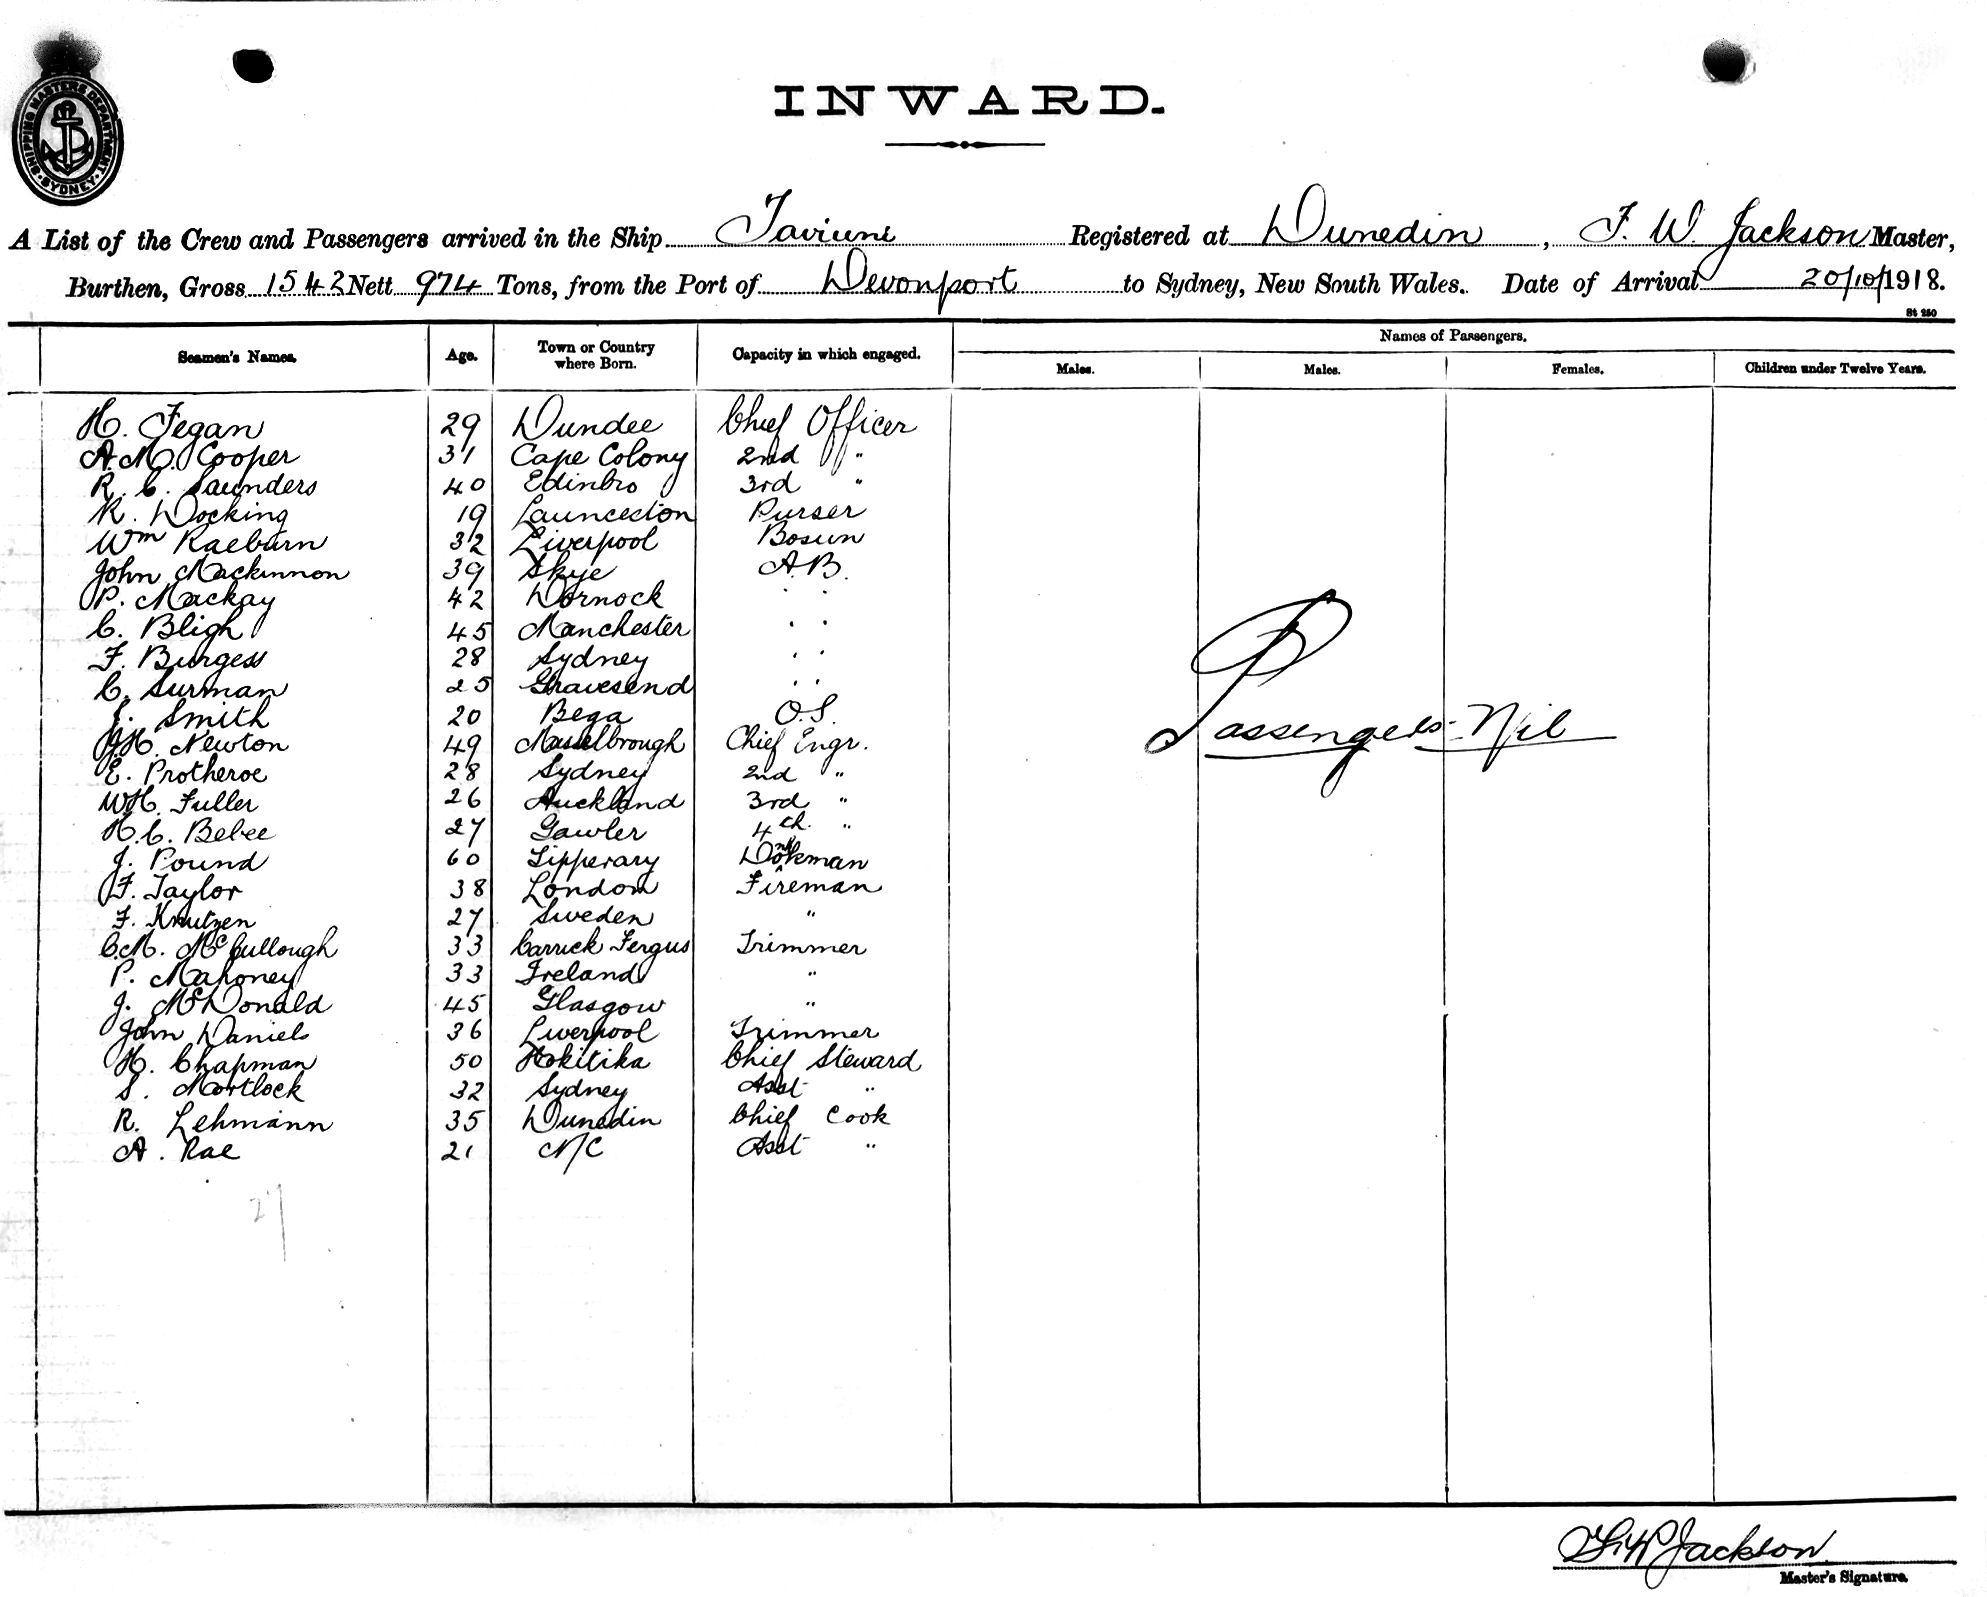 SHIPPING MASTERS DEPARTMENT SYDNEY
INWARD.
A List of the Crew and Passengers arrived in the Ship Taviuni Registered at Dunedin, F. W. Jackson Master,
Burthen, Gross 1542 Nett 974 Tons, from the Port of Devonport to Sydney, New South Wales. Date of Arrival 20/10/1918.
St 250
Seamen's Names. Age. Town or Country where Born. Capacity in which engaged. Names of Passengers.
Males. Males. Females. Children under Twelve Years.
H. Fegan 29 Dundee Chief Officer
A.M. Cooper 31 Cape Colony 2nd "
R. C. Saunders 40 Edinbro 3rd "
R. Docking 19 Launceston Purser
Wm Raeburn 32 Liverpool Bosun
John Mackinnon 39 Skye A.B.
P. Mackay 42 Dornock . .
C. Bligh 45 Manchester . .
F. Burgess 28 Sydney . .
C. Surman 25 Gravesend . .
Smith 20 Bega O.S.
J.H. Newton 49 Musselbrough Chief Engr.
E. Protheroe 28 Sydney 2nd "
W.H. Fuller 26 Auckland 3rd "
H.C. Bebee 27 Gawler 4th "
J. Pound 60 Tipperary Donkman
F. Taylor 38 London Fireman
F. Knutzen 27 Sweden "
C.M. McCullough 33 Carrick Fergus Trimmer
P. Mahoney 33 Ireland "
J. McDonald 45 Glasgow "
John Daniels 36 Liverpool Trimmer
H. Chapman 50 Hokitika Chief Steward
S. Mortlock 32 Sydney Asst "
R. Lehmann 35 Dunedin Chief Cook
A. Rae 21 N/C Asst "
Passengers - Nil
27
F.W. Jackson
Master's Signature.